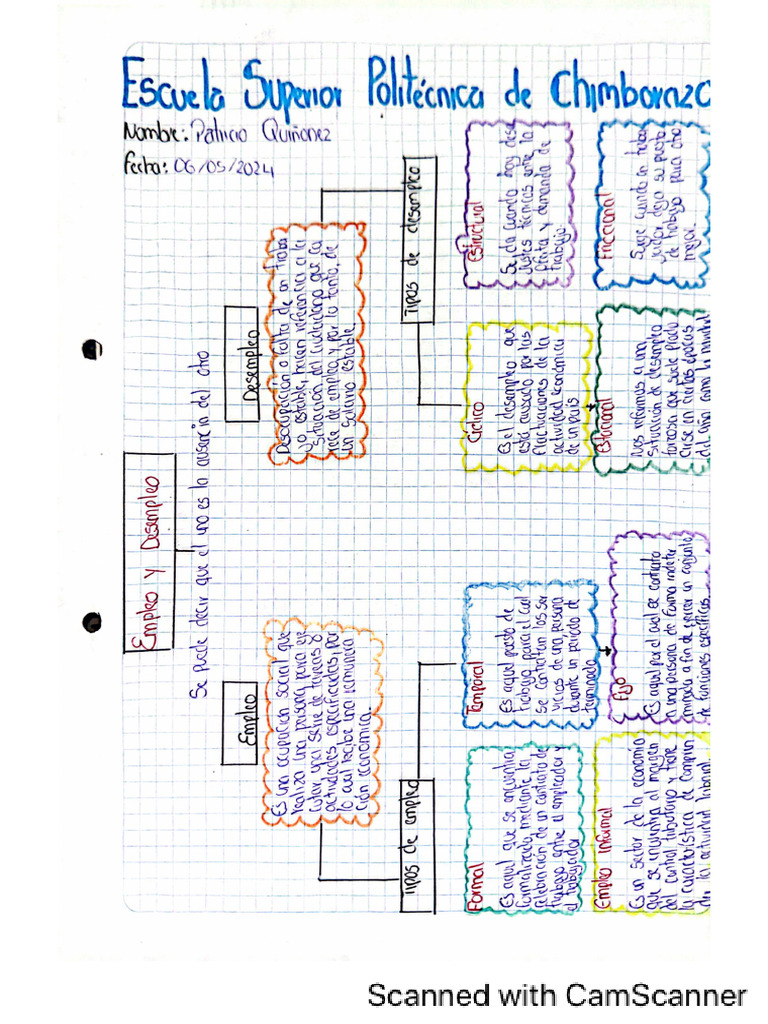 Escuela Superior Politécnica de Chimborazo
Nombre: Patricio Quiñonez
Fecha: 06/05/2024
Empleo y Desempleo
Se puede decir que el uno es la ausencia del otro
Empleo
Es una ocupación social que
realiza una persona para eje
cutar una serie de tareas y
actividades especificadas, por
lo cual recibe una remunera
ción económica.
Tipos de empleo
Formal
Es aquel que se encuentra
formalizado, mediante la
celebración de un contrato de
trabajo entre el empleador y
el trabajador
Temporal
Es aquel puesto de
trabajo para el cual
se contratan los ser
vicios de una persona
durante un periodo de
terminado
Empleo informal
Es un sector de la economía
que se encuentra al margen
del control tributario y tiene
la característica de
la actividad laboral
Fijo
Es aquel por el cual se contrata
a una persona de forma indete
rminada a fin de ejercer un conjunto
de funciones específicas.
Desempleo
Desocupación o falta de un traba
jo estable, hacen referencia a la
situación del ciudadano que ca
rece de empleo y, por lo tanto, de
un salario estable
Tipos de desempleo
Cíclico
Es el desempleo que
está causado por las
fluctuaciones de la
actividad económica
de un país
Estructural
Se da cuando hay desa
justes técnicos entre la
oferta y demanda de
trabajo
Estacional
Nos referimos a una
situación de desempleo
forzosa que suele produ
cirse en ciertas épocas
del año como la
Friccional
Surge cuando un traba
jador deja su puesto
de trabajo para otro
mejor.
Scanned with CamScanner